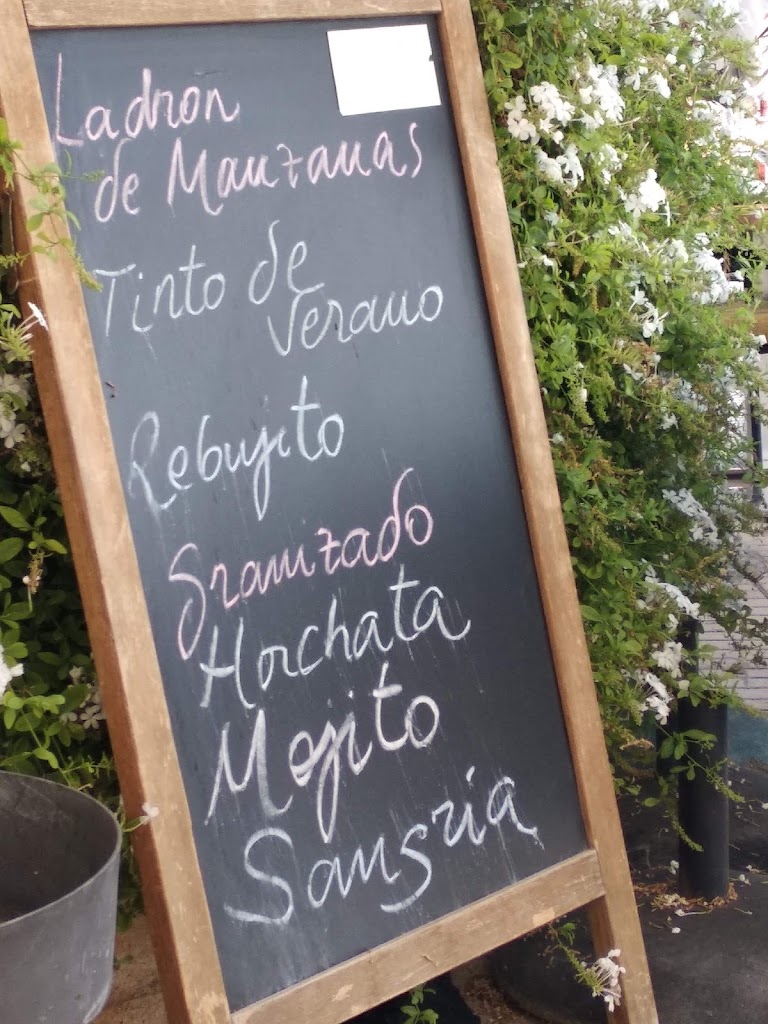 Ladron
de Manzanas
Tinto de
Verano
Rebujito
Granizado
Horchata
Mojito
Sangría